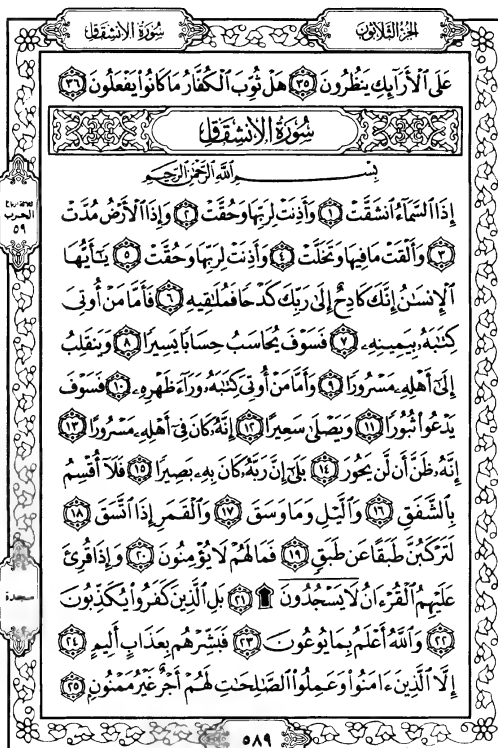 سُورَةُ الانشِقَاقِ
الجُزءُ الثَّلاثُونَ
عَلَى ٱلْأَرَآئِكِ يَنظُرُونَ ٣٥ هَلْ ثُوِّبَ ٱلْكُفَّارُ مَا كَانُوا۟ يَفْعَلُونَ ٣٦
سُورَةُ الانشِقَاقِ
بِسْمِ ٱللَّهِ ٱلرَّحْمَٰنِ ٱلرَّحِيمِ
إِذَا ٱلسَّمَآءُ ٱنشَقَّتْ ١ وَأَذِنَتْ لِرَبِّهَا وَحُقَّتْ ٢ وَإِذَا ٱلْأَرْضُ مُدَّتْ
٣ وَأَلْقَتْ مَا فِيهَا وَتَخَلَّتْ ٤ وَأَذِنَتْ لِرَبِّهَا وَحُقَّتْ ٥ يَٰٓأَيُّهَا
ٱلْإِنسَٰنُ إِنَّكَ كَادِحٌ إِلَىٰ رَبِّكَ كَدْحًا فَمُلَٰقِيهِ ٦ فَأَمَّا مَنْ أُوتِىَ
كِتَٰبَهُۥ بِيَمِينِهِۦ ٧ فَسَوْفَ يُحَاسَبُ حِسَابًا يَسِيرًا ٨ وَيَنقَلِبُ
إِلَىٰٓ أَهْلِهِۦ مَسْرُورًا ٩ وَأَمَّا مَنْ أُوتِىَ كِتَٰبَهُۥ وَرَآءَ ظَهْرِهِۦ ١٠ فَسَوْفَ
يَدْعُوا۟ ثُبُورًا ١١ وَيَصْلَىٰ سَعِيرًا ١٢ إِنَّهُۥ كَانَ فِىٓ أَهْلِهِۦ مَسْرُورًا ١٣
إِنَّهُۥ ظَنَّ أَن لَّن يَحُورَ ١٤ بَلَىٰٓ إِنَّ رَبَّهُۥ كَانَ بِهِۦ بَصِيرًا ١٥ فَلَآ أُقْسِمُ
بِٱلشَّفَقِ ١٦ وَٱلَّيْلِ وَمَا وَسَقَ ١٧ وَٱلْقَمَرِ إِذَا ٱتَّسَقَ ١٨
لَتَرْكَبُنَّ طَبَقًا عَن طَبَقٍ ١٩ فَمَا لَهُمْ لَا يُؤْمِنُونَ ٢٠ وَإِذَا قُرِئَ
عَلَيْهِمُ ٱلْقُرْءَانُ لَا يَسْجُدُونَ ۩ ٢١ بَلِ ٱلَّذِينَ كَفَرُوا۟ يُكَذِّبُونَ
٢٢ وَٱللَّهُ أَعْلَمُ بِمَا يُوعُونَ ٢٣ فَبَشِّرْهُم بِعَذَابٍ أَلِيمٍ ٢٤
إِلَّا ٱلَّذِينَ ءَامَنُوا۟ وَعَمِلُوا۟ ٱلصَّٰلِحَٰتِ لَهُمْ أَجْرٌ غَيْرُ مَمْنُونٍۭ ٢٥
الحزب
٥٩
سجدة
٥٨٩